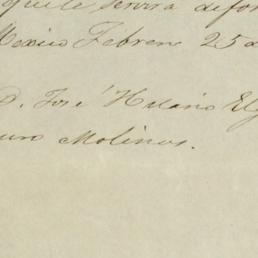 que le servira de for
Mexico Febrero 25 d
D. José Hilario El
uro Molinos.